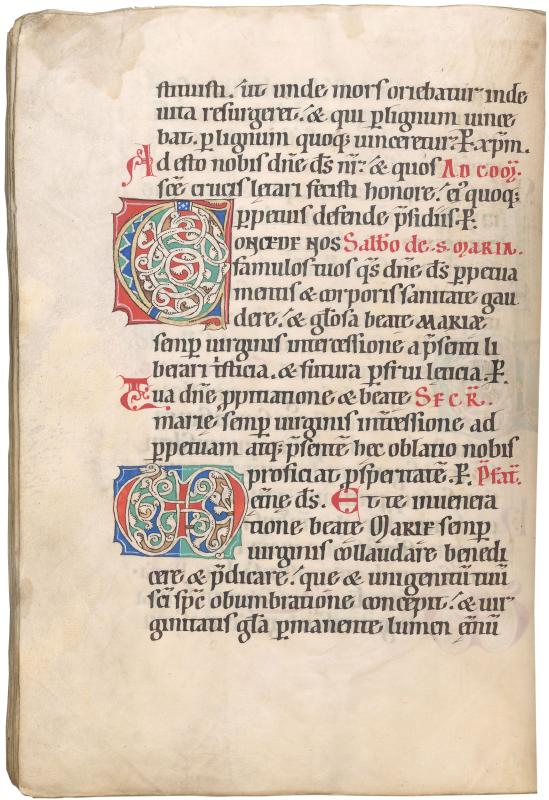 stituisti. ut unde mors oriebatur inde
uita resurgeret. & qui plignum uince
bat. plignum quoq; uinceretur. P. xpm.
Adesto nobis dne ds nr. & quos AD COM.
sce crucis letari fecisti honore. ei quoq;
ppetuis defende psidiis. P.
CONCEDE NOS Sabbo de. S. MARIA.
famulos tuos qs dne ds ppetua
mentis & corporis sanitate gau
dere. & glosa beate MARIAE
semp uirginis intercessione a psenti li
berari tristicia. & futura pfrui leticia. P.
Tua dne ppitiatione & beate SECR.
marie semp uirginis intcessione ad
ppetuam atq; psente hec oblatio nobis
proficiat pspertate. P. Pfat.
UD eterne ds. Et te in uenera
tione beate MARIE semp
uirginis collaudare benedi
cere & pdicare. que & unigenitu tuu
sci spc obumbratione concepit. & uir
ginitatis gla pmanente lumen etnu